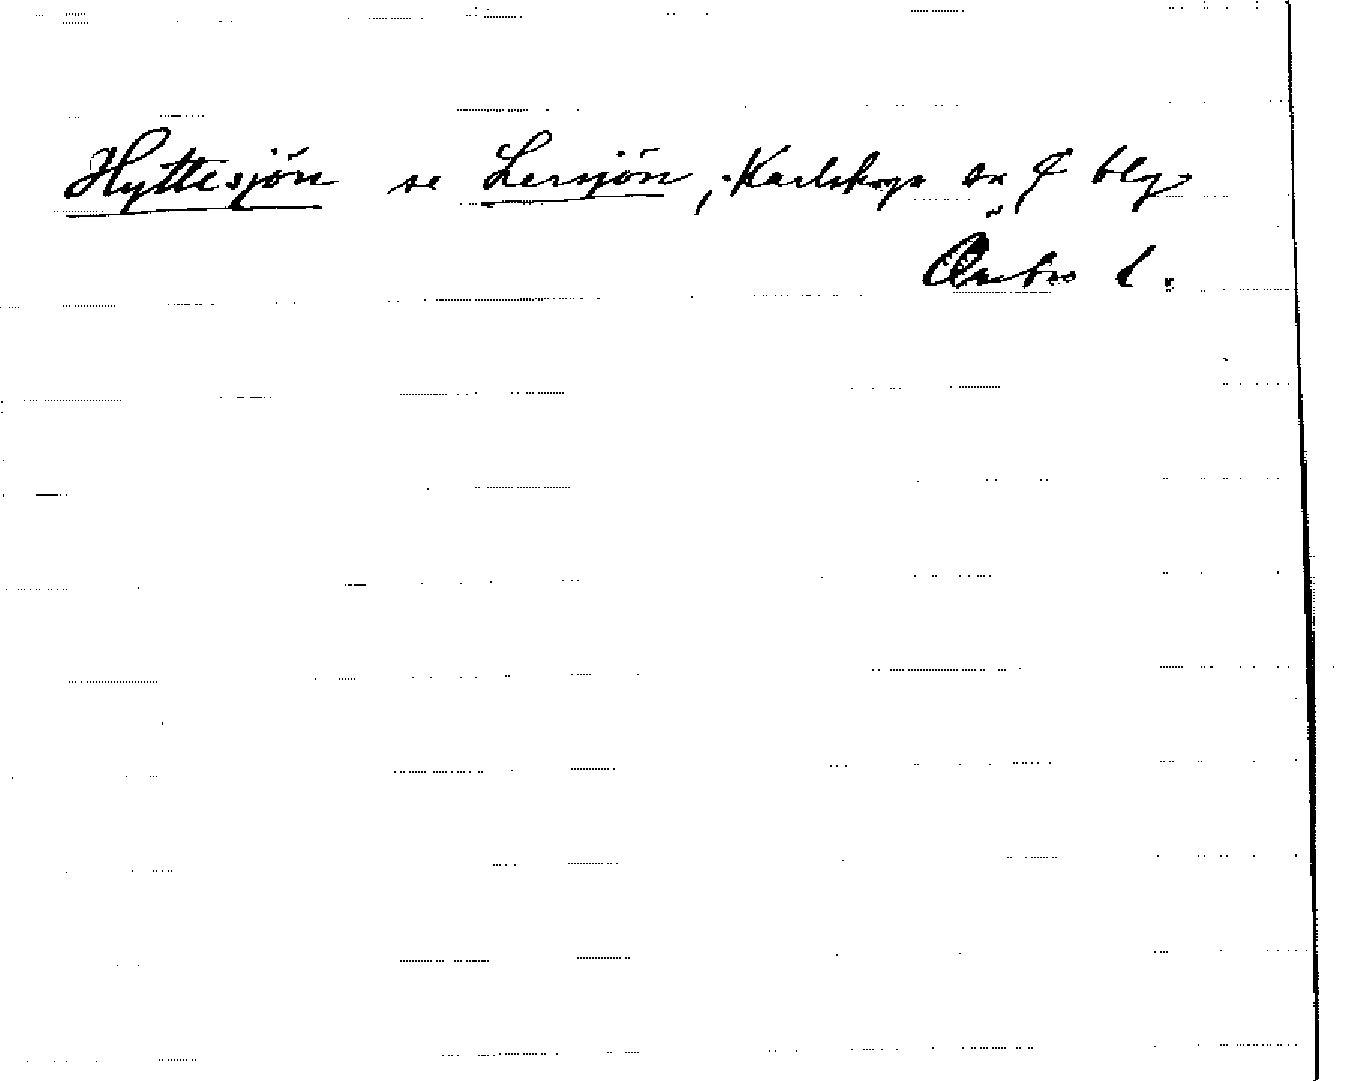 Hyttesjön se Lersjön, Karlskoga sn o blg
Örebro l.